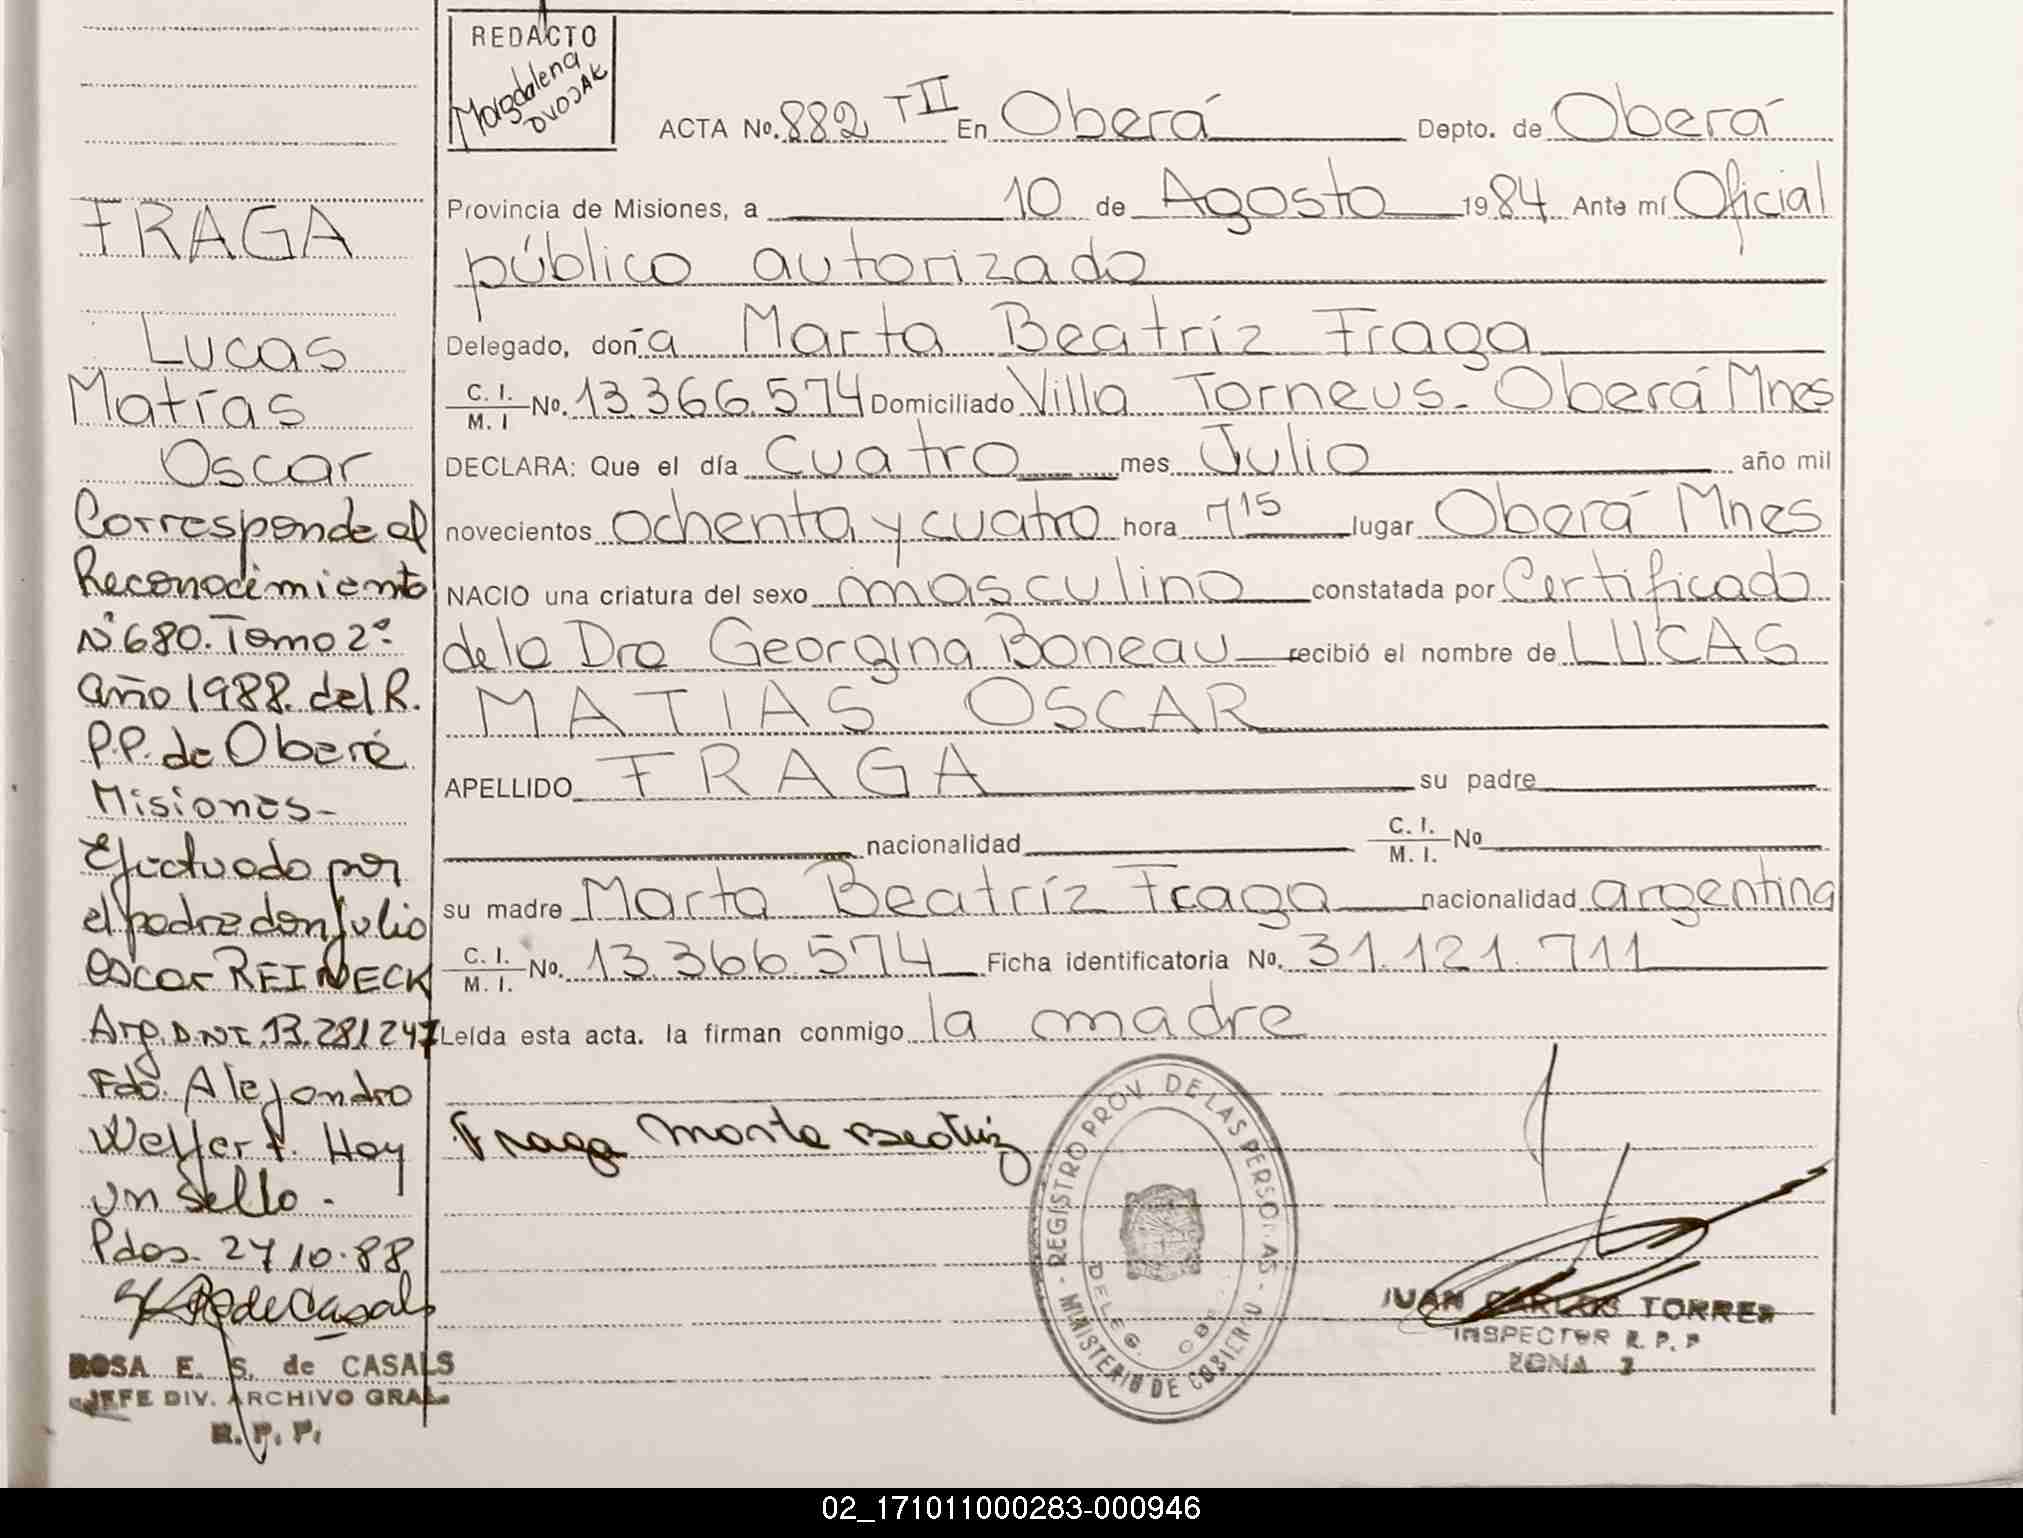 REDACTO
Magdalena
DVOJAK
ACTA No. 882 T II En Oberá Depto. de Oberá
Provincia de Misiones, a 10 de Agosto 1984 Ante mí Oficial
público autorizado
Delegado, doña Marta Beatríz Fraga
C. I. / M. I No. 13.366.574 Domiciliado Villa Torneus - Oberá Mnes
DECLARA: Que el día cuatro mes Julio año mil
novecientos ochenta y cuatro hora 7 15 lugar Oberá Mnes
NACIO una criatura del sexo masculino constatada por Certificado
de la Dra Georgina Boneau recibió el nombre de LUCAS
MATIAS OSCAR
APELLIDO FRAGA su padre
nacionalidad C. I. / M. I. No
su madre Marta Beatríz Fraga nacionalidad argentina
C. I. / M. I. No. 13.366.574 Ficha identificatoria No. 31.121.711
Leída esta acta. la firman conmigo la madre
Fraga Marta Beatriz
REGISTRO PROV. DE LAS PERSONAS - MINISTERIO DE GOBIERNO -
DELEG.
JUAN CARLOS TORRES
INSPECTOR R. P. P
ZONA 2
FRAGA
Lucas
Matías
Oscar
Corresponde al
Reconocimiento
Nº 680. Tomo 2º.
año 1988. del R.
P.P. de Oberá
Misiones-
Efectuado por
el padre don Julio
Oscar REINECK
Arg. D.N.I. 13.281247
Fdo. Alejandro
Welfert. Hay
un sello.
Pdas. 27 10.88
R de Casals
ROSA E. S. de CASALS
JEFE DIV. ARCHIVO GRAL.
R. P. P.
02_171011000283-000946